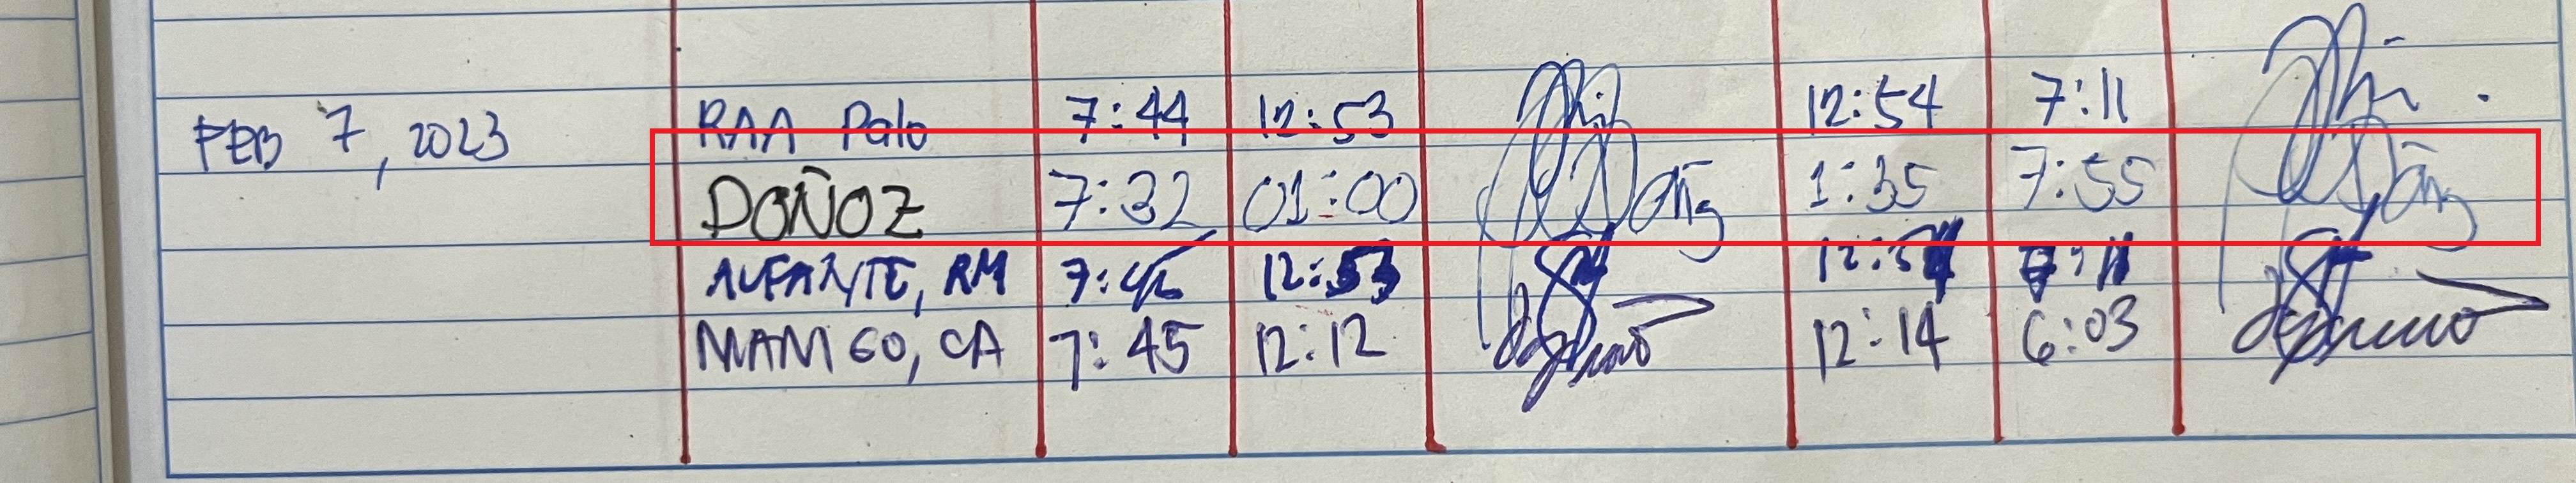 FEB 7, 2023 RAA Palo 7:44 12:53 12:54 7:11
DOÑOZ 7:32 01:00 1:35 7:55
ALFANTE, RM 7:46 12:53 12:54 7:11
MANIGO, CA 7:45 12:12 12:14 6:03